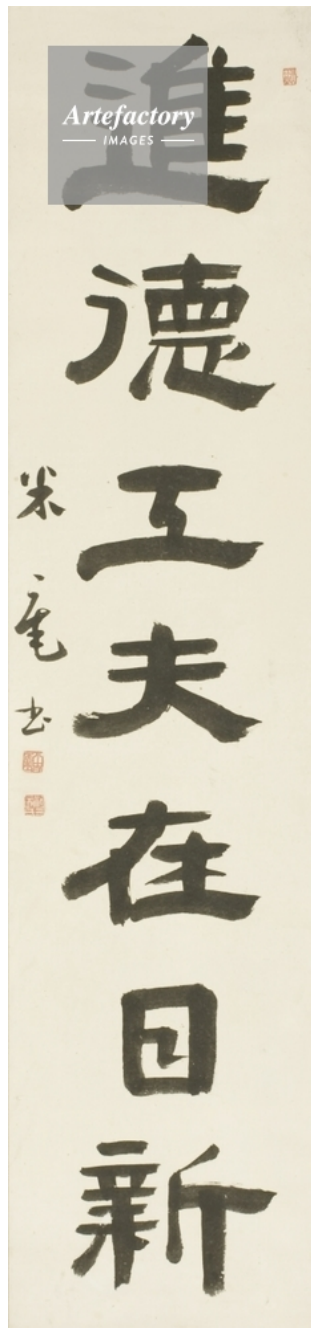 Artefactory
IMAGES
進德工夫在日新
米庵書